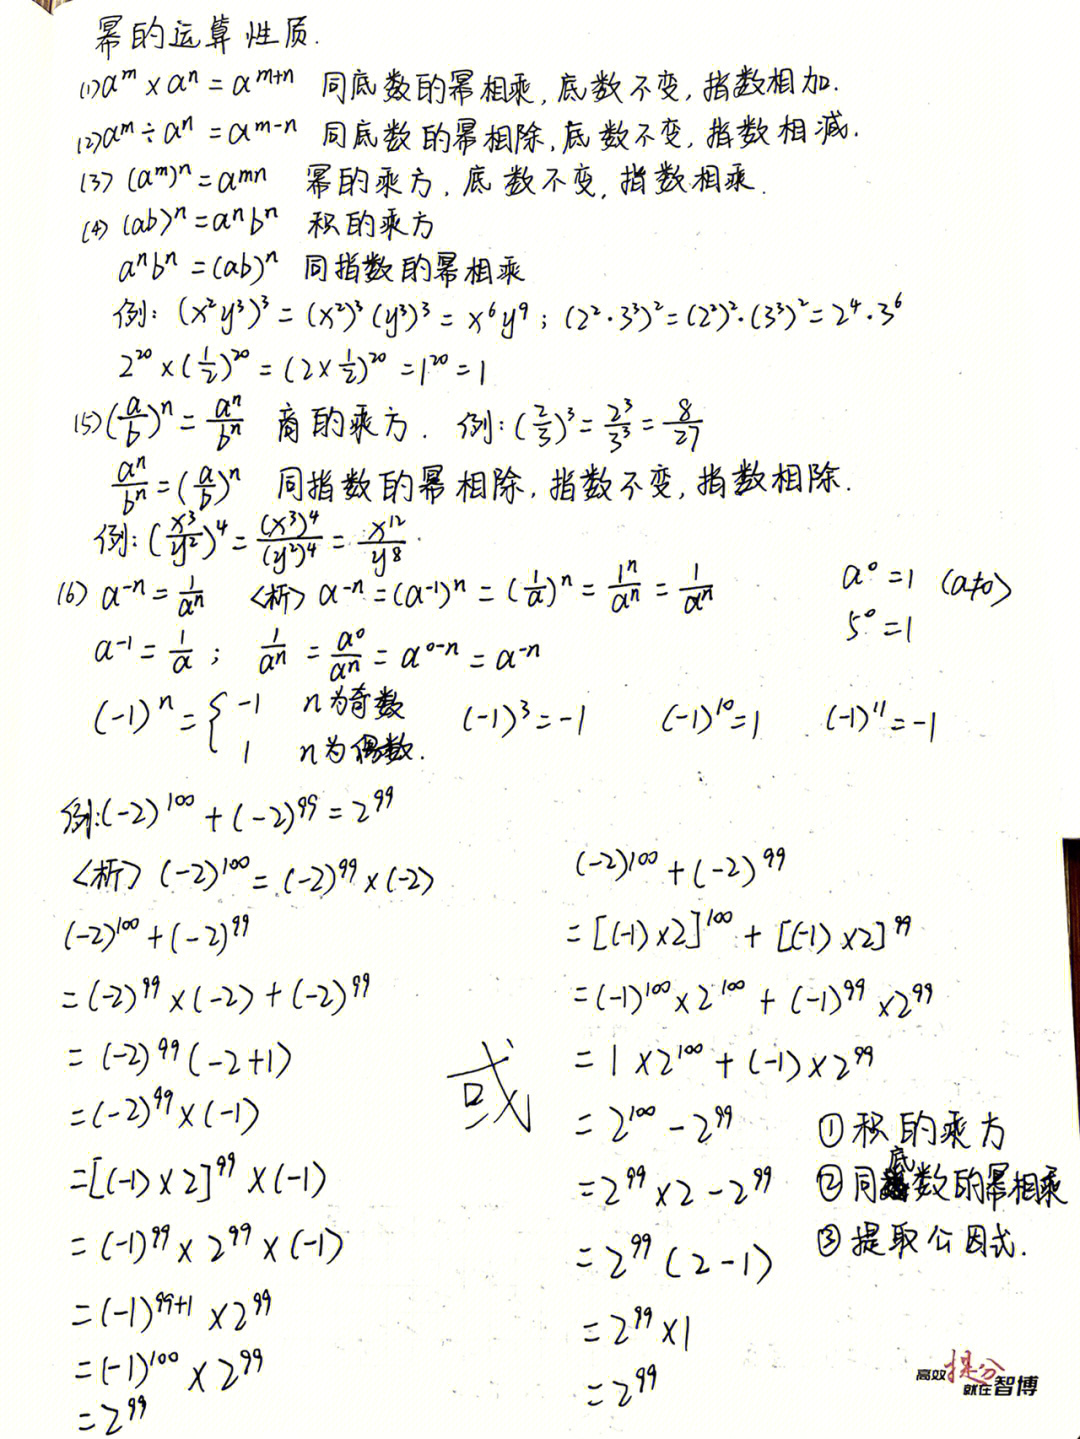 幂的运算性质.
(1) a^m × a^n = a^{m+n} 同底数的幂相乘, 底数不变, 指数相加.
(2) a^m ÷ a^n = a^{m-n} 同底数的幂相除, 底数不变, 指数相减.
(3) (a^m)^n = a^{mn} 幂的乘方, 底数不变, 指数相乘.
(4) (ab)^n = a^n b^n 积的乘方
a^n b^n = (ab)^n 同指数的幂相乘
例: (x²y³)³ = (x²)³(y³)³ = x⁶y⁹; (2²·3³)² = (2²)²·(3³)² = 2⁴·3⁶
2^{20} × (1/2)^{20} = (2×1/2)^{20} = 1^{20} = 1
(5) (a/b)^n = a^n/b^n 商的乘方. 例: (2/3)³ = 2³/3³ = 8/27
a^n/b^n = (a/b)^n 同指数的幂相除, 指数不变, 指数相除.
例: (x³/y²)⁴ = (x³)⁴/(y²)⁴ = x^{12}/y⁸.
(6) a^{-n} = 1/a^n <析> a^{-n} = (a^{-1})^n = (1/a)^n = 1^n/a^n = 1/a^n a⁰=1 (a≠0)
5⁰=1
a^{-1} = 1/a; 1/a^n = a⁰/a^n = a^{0-n} = a^{-n}
(-1)^n = { -1 n为奇数 (-1)³=-1 (-1)^{10}=1 (-1)^{11}=-1
1 n为偶数.
例: (-2)^{100} + (-2)^{99} = 2^{99}
<析> (-2)^{100} = (-2)^{99} × (-2)
(-2)^{100} + (-2)^{99}
= (-2)^{99} × (-2) + (-2)^{99}
= (-2)^{99} (-2+1)
= (-2)^{99} × (-1)
= [(-1)×2]^{99} × (-1)
= (-1)^{99} × 2^{99} × (-1)
= (-1)^{99+1} × 2^{99}
= (-1)^{100} × 2^{99}
= 2^{99}
或
(-2)^{100} + (-2)^{99}
= [(-1)×2]^{100} + [(-1)×2]^{99}
= (-1)^{100} × 2^{100} + (-1)^{99} × 2^{99}
= 1 × 2^{100} + (-1) × 2^{99}
= 2^{100} - 2^{99}
= 2^{99} × 2 - 2^{99}
= 2^{99} (2-1)
= 2^{99} × 1
= 2^{99}
①积的乘方
②同底数的幂相乘
③提取公因式.
高效提分
就在智博